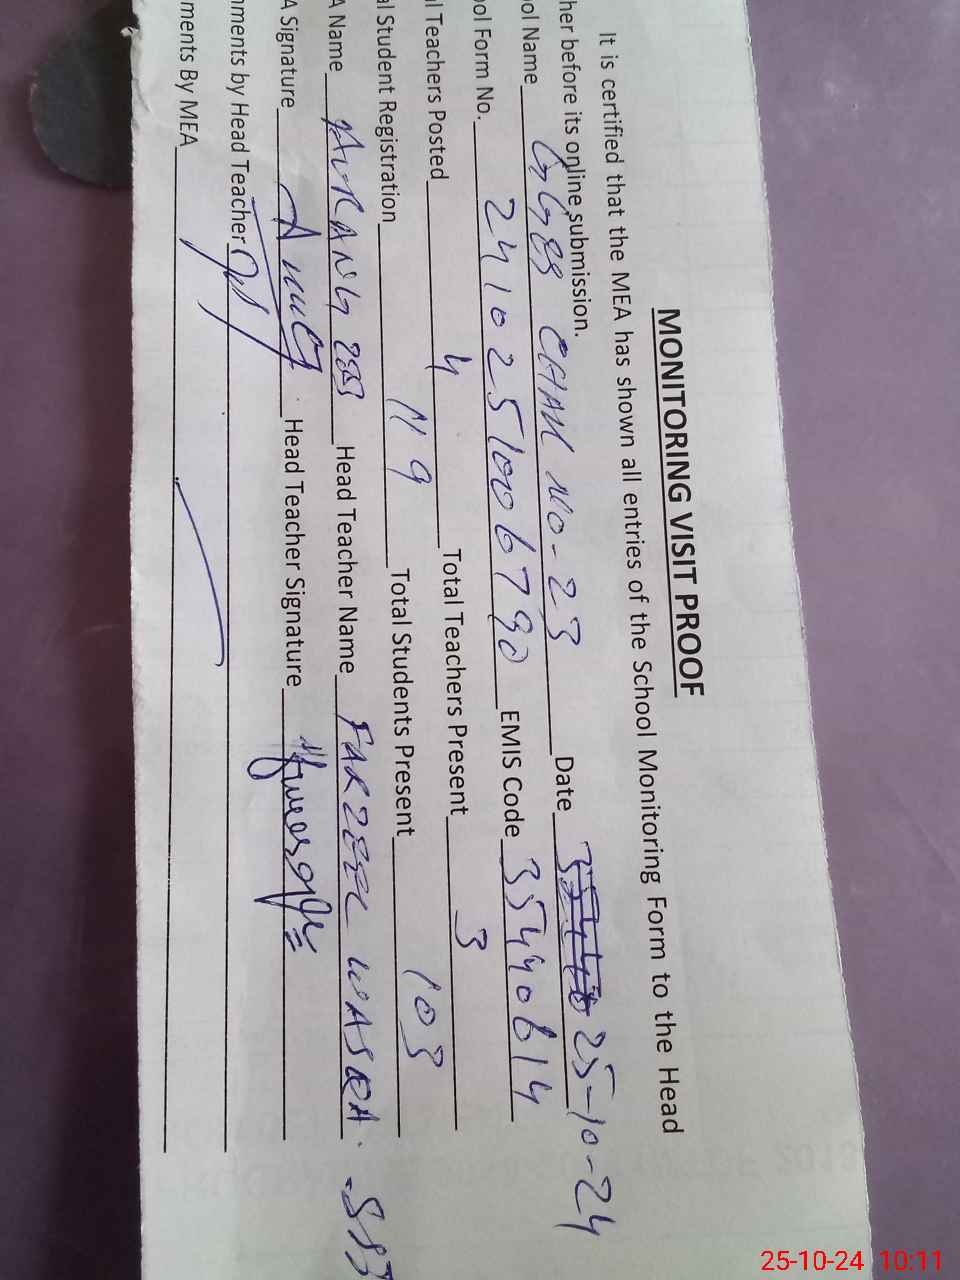 MONITORING VISIT PROOF
It is certified that the MEA has shown all entries of the School Monitoring Form to the Head
her before its online submission.
ool Name GGES CHAK NO-23 Date 25-10-24
ool Form No. 2410251006790 EMIS Code 35440614
l Teachers Posted 4 Total Teachers Present 3
al Student Registration 119 Total Students Present 103
A Name Head Teacher Name
A Signature Head Teacher Signature
mments by Head Teacher
ments By MEA
25-10-24 10:11